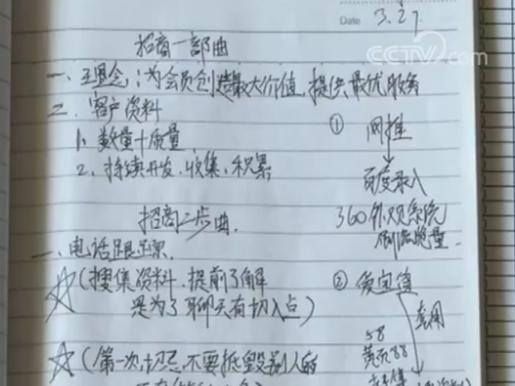 Date 3.27.
CCTV.com
招商一部曲
一、理念:为会员创造最大价值,提供最优服务
二、客户资料
1、数量+质量
2、持续开发、收集、积累
① 网推
百度录入
360外观系统
刷流览量
招商二步曲.
一、电话跟踪
☆(搜集资料,提前了解
是为了聊天有切入点)
②
套用
58
黄页88
☆(第一次,切忌,不要抵毁别人的